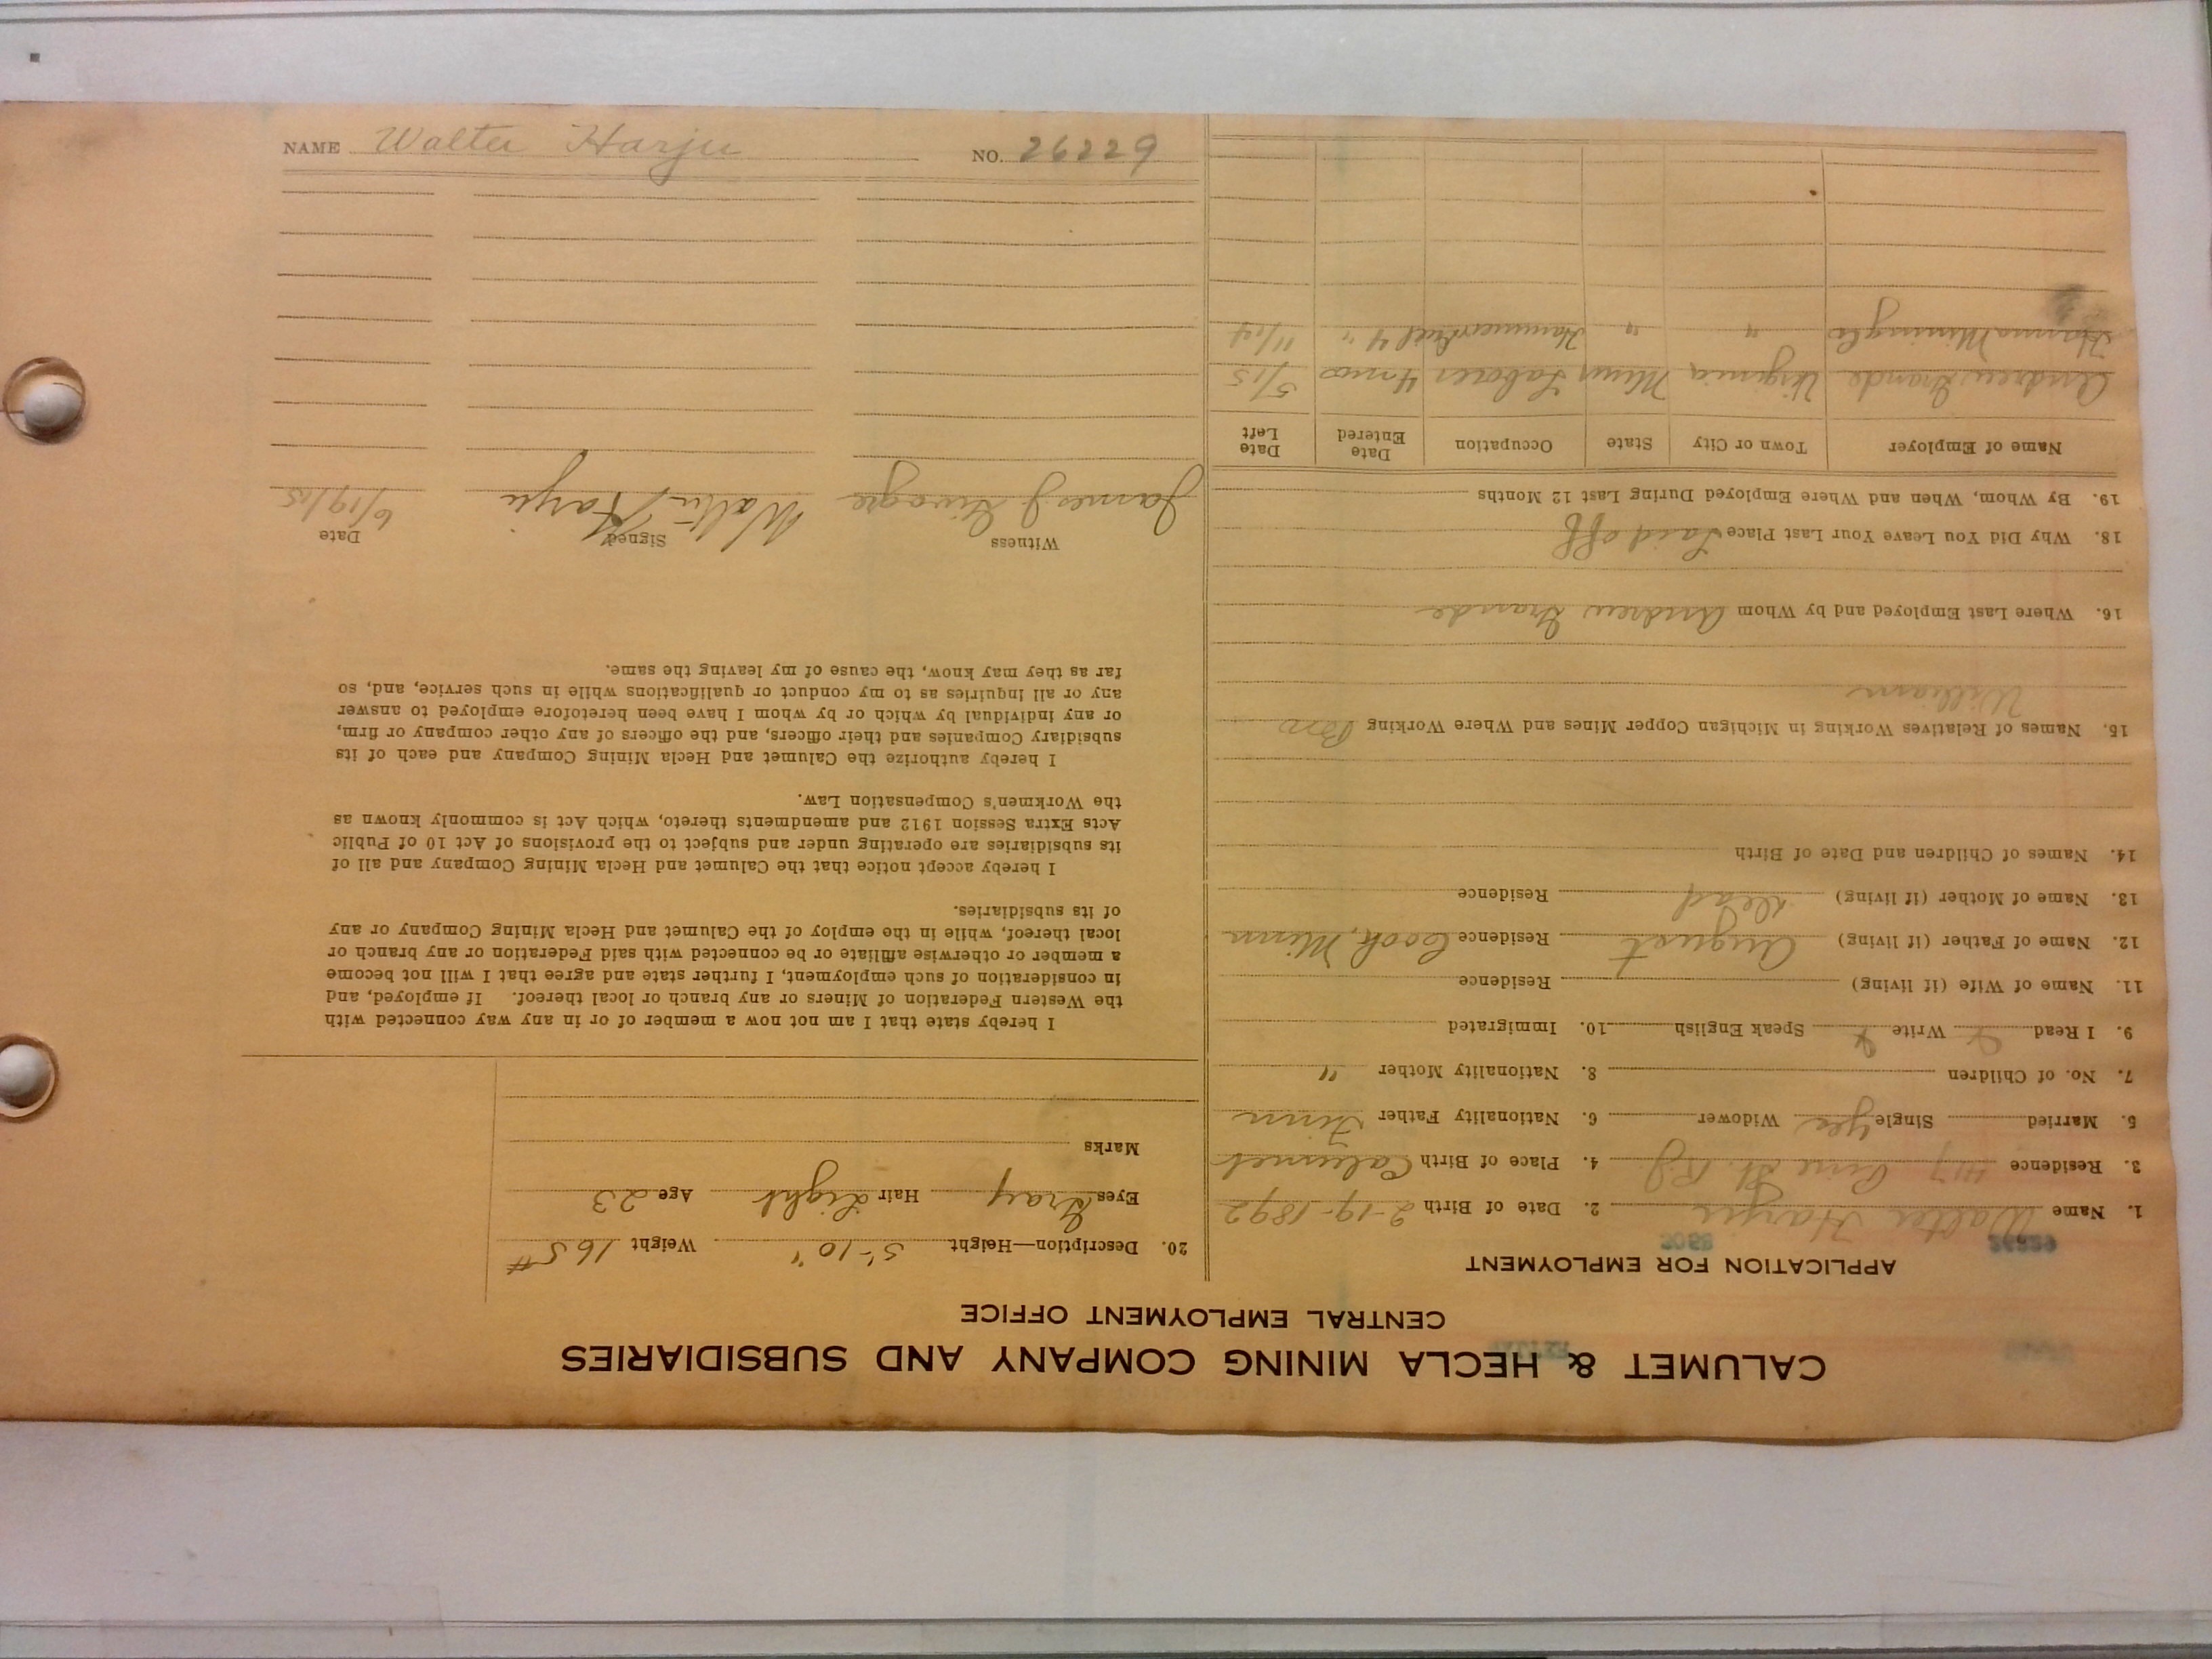 CALUMET & HECLA MINING COMPANY AND SUBSIDIARIES
CENTRAL EMPLOYMENT OFFICE
APPLICATION FOR EMPLOYMENT
26229
1. Name Walter Harju 2. Date of Birth 2-19-1892
3. Residence Pine St. 4. Place of Birth Calumet
5. Married Single yes Widower 6. Nationality Father Finn
7. No. of Children 8. Nationality Mother "
9. I Read Write Speak English 10. Immigrated
11. Name of Wife (if living) Residence
12. Name of Father (if living) August Residence Cook, Minn
13. Name of Mother (if living) Dead Residence
14. Names of Children and Date of Birth
15. Names of Relatives Working in Michigan Copper Mines and Where Working
William
16. Where Last Employed and by Whom Andrew Grande
18. Why Did You Leave Your Last Place Laid off
19. By Whom, When and Where Employed During Last 12 Months
Name of Employer Town or City State Occupation Date Entered Date Left
Andrew Grande Virginia Minn Laborer 4 mos 5/15
Hanna Mining Co " " 4 " 11/14
20. Description—Height 5'-10" Weight 165#
Eyes Gray Hair Light Age 23
Marks
I hereby state that I am not now a member of or in any way connected with
the Western Federation of Miners or any branch or local thereof. If employed, and
in consideration of such employment, I further state and agree that I will not become
a member or otherwise affiliate or be connected with said Federation or any branch or
local thereof, while in the employ of the Calumet and Hecla Mining Company or any
of its subsidiaries.
I hereby accept notice that the Calumet and Hecla Mining Company and all of
its subsidiaries are operating under and subject to the provisions of Act 10 of Public
Acts Extra Session 1912 and amendments thereto, which Act is commonly known as
the Workmen's Compensation Law.
I hereby authorize the Calumet and Hecla Mining Company and each of its
subsidiary Companies and their officers, and the officers of any other company or firm,
or any individual by which or by whom I have been heretofore employed to answer
any or all inquiries as to my conduct or qualifications while in such service, and, so
far as they may know, the cause of my leaving the same.
Witness Signed Date
James J. Walter Harju 6/19/15
NAME Walter Harju NO. 26229